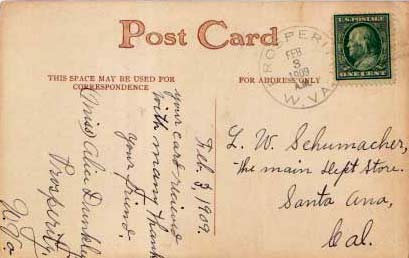 Post Card
THIS SPACE MAY BE USED FOR
CORRESPONDENCE
FOR ADDRESS ONLY
PROSPERITY
FEB
8
1909
A.M.
W.VA.
U.S. POSTAGE
ONE CENT
Feb. 8, 1909.
your card received
with many thanks
your friend,
Miss Alice Dunkley
Prosperity,
W. Va.
L. W. Schumacher,
The main Dept Store.
Santa Ana,
Cal.